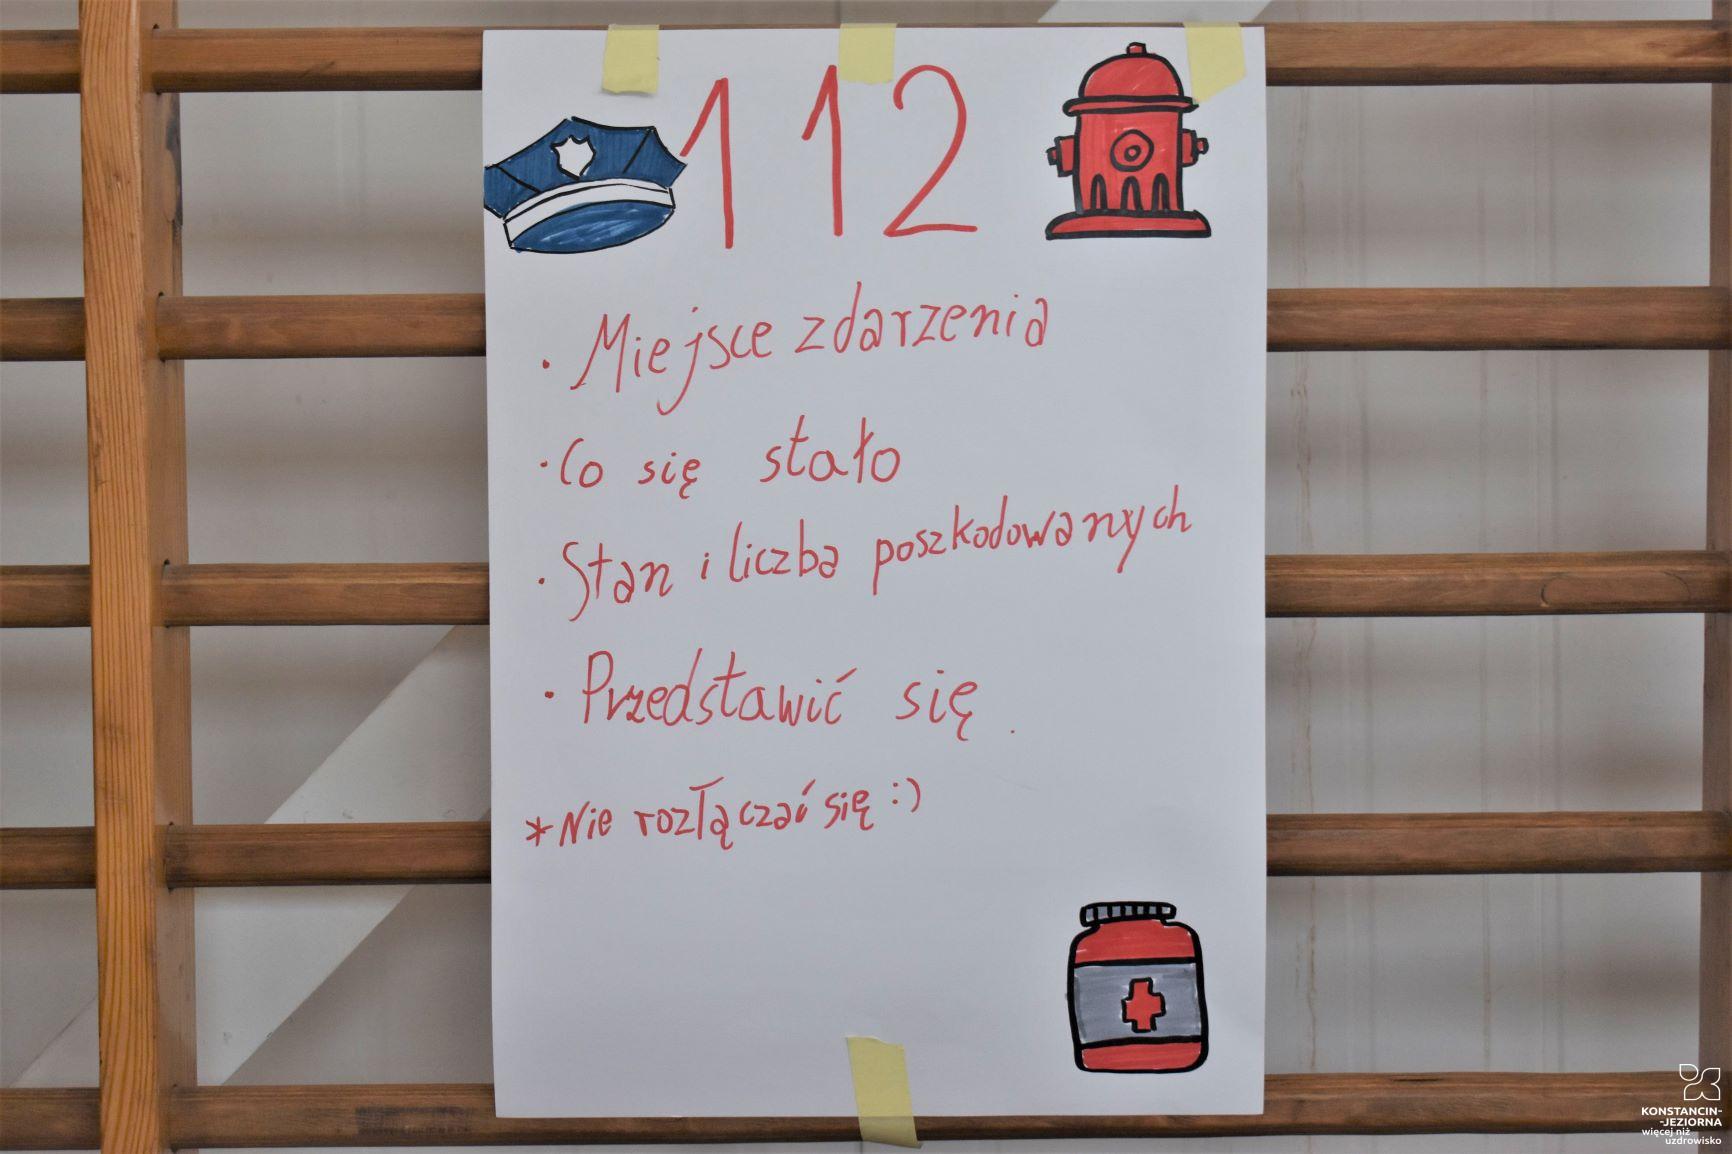 112
· Miejsce zdarzenia
· Co się stało
· Stan i liczba poszkodowanych
· Przedstawić się.
* Nie rozłączać się :)
KONSTANCIN-
-JEZIORNA
więcej niż
uzdrowisko